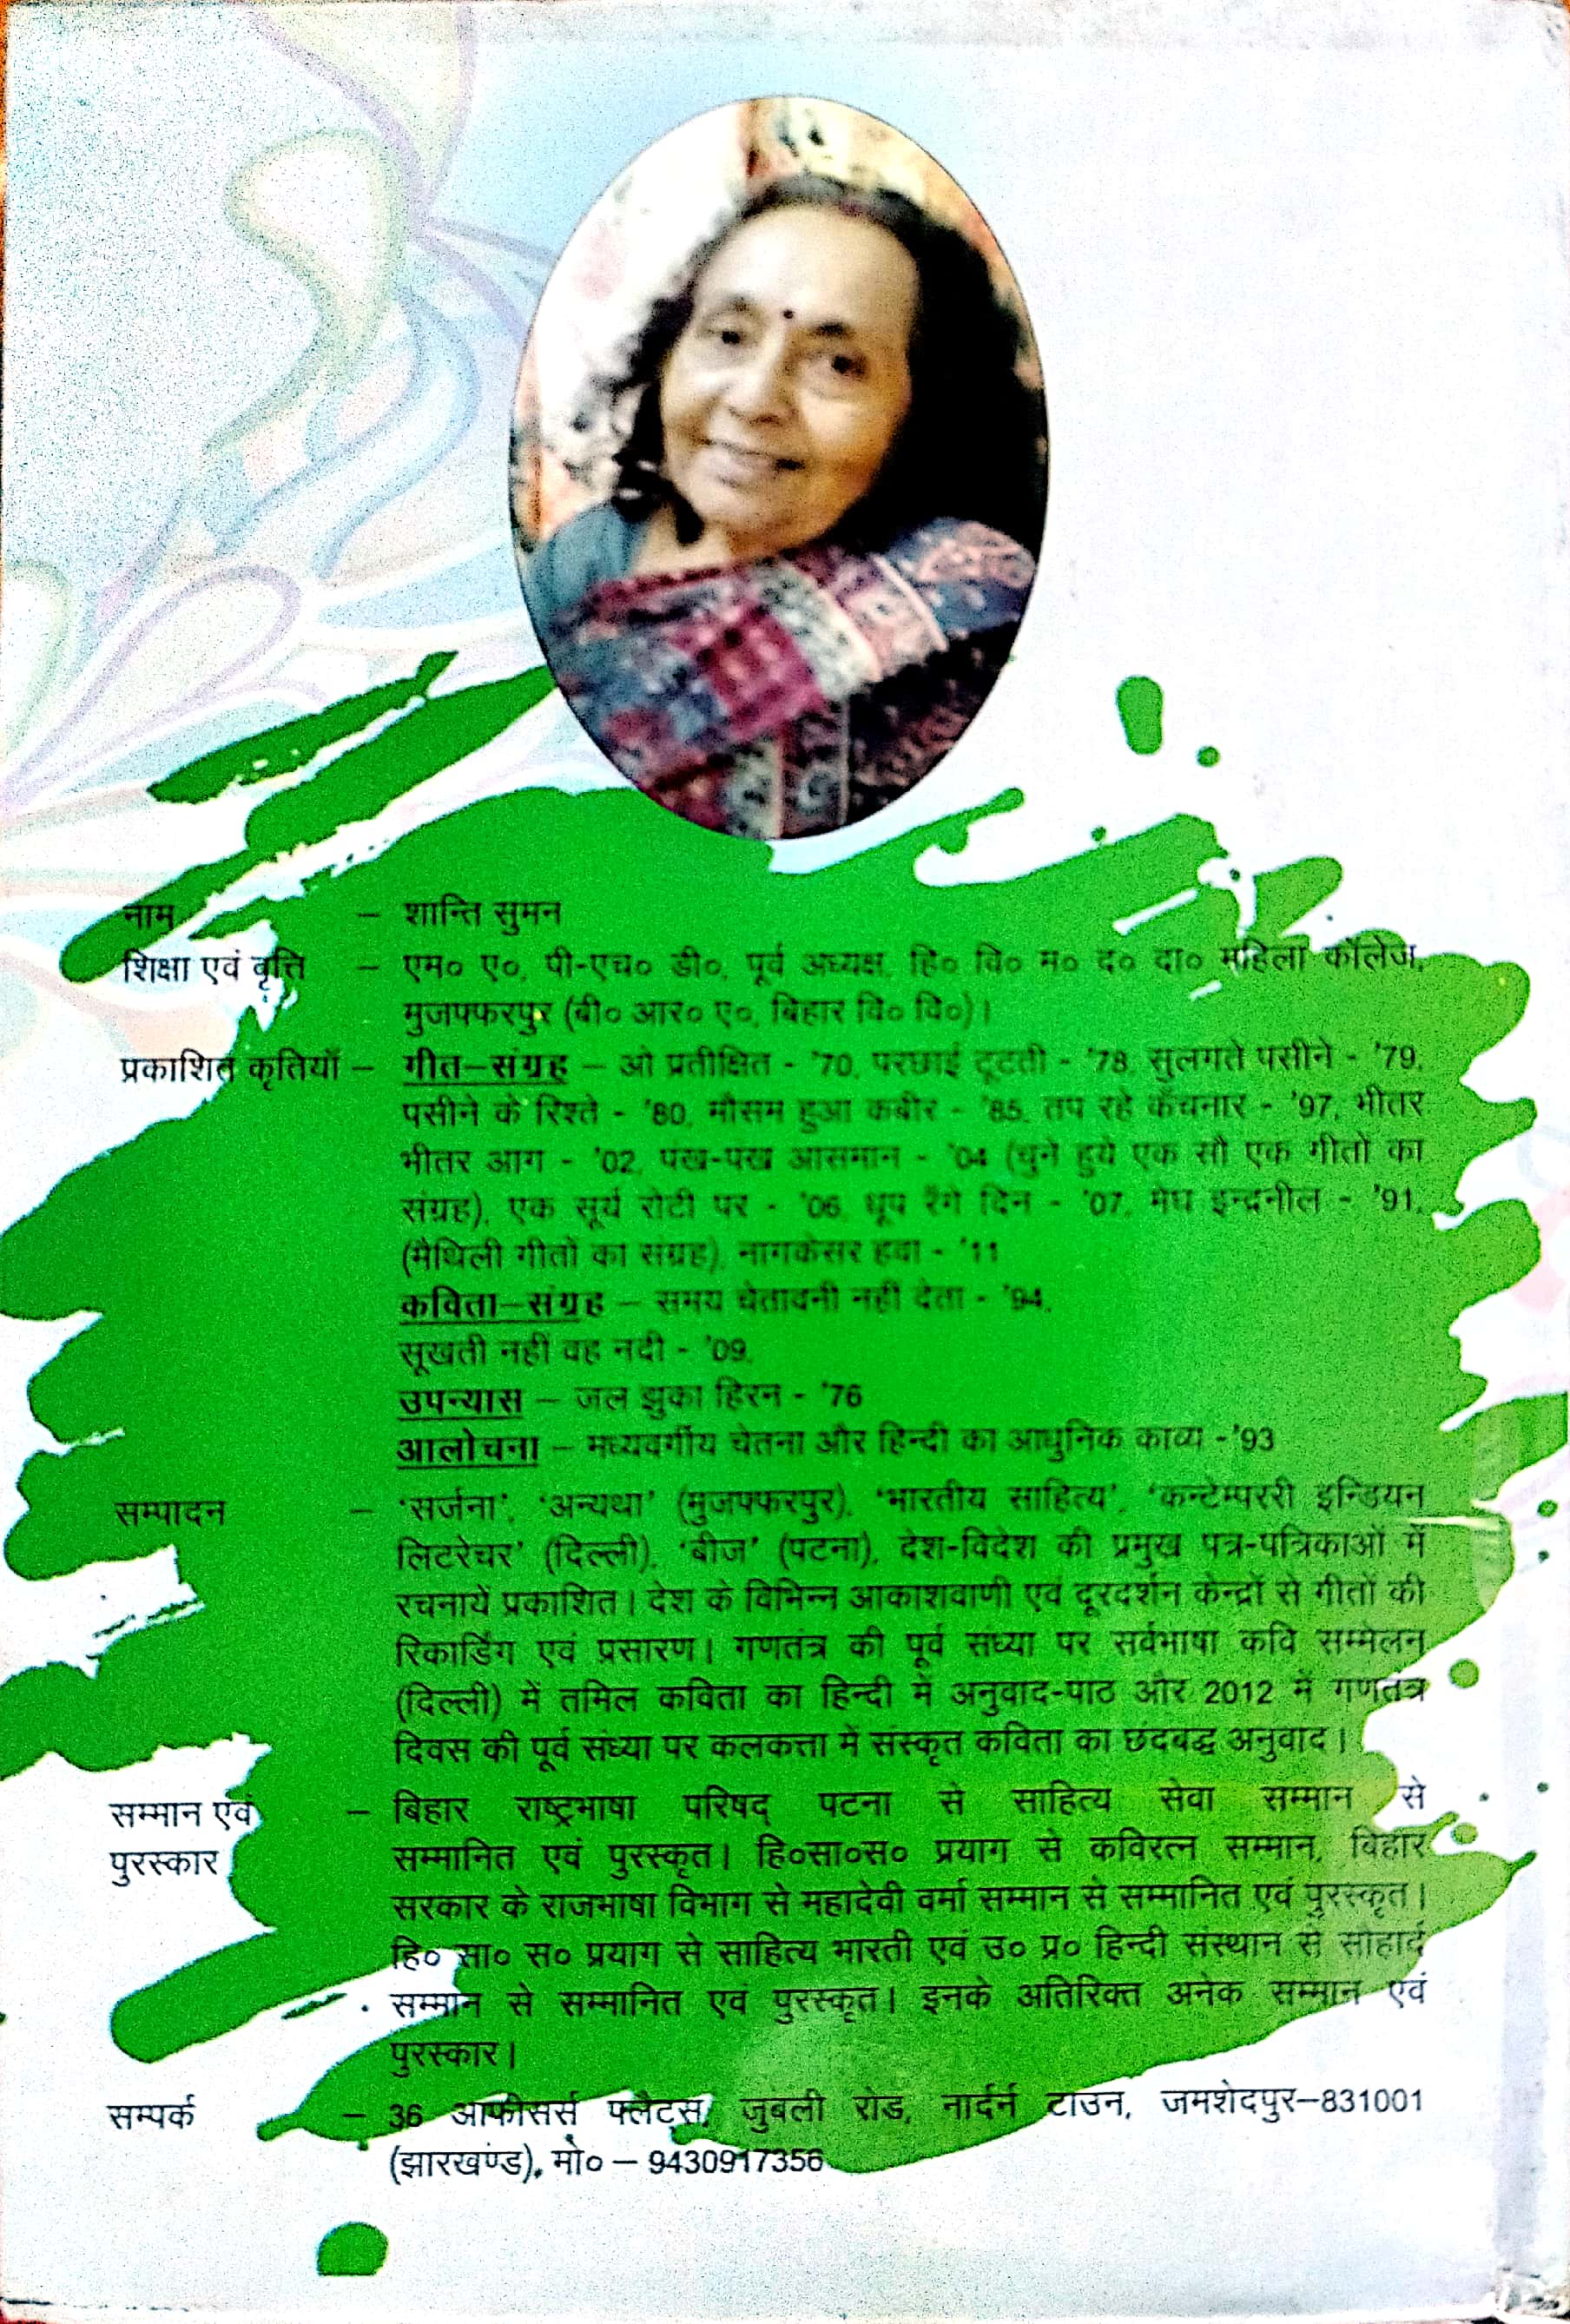 नाम – शान्ति सुमन
शिक्षा एवं वृत्ति – एम० ए०, पी-एच० डी०, पूर्व अध्यक्ष, हि० वि० म० द० दा० महिला कॉलेज,
मुजफ्फरपुर (बी० आर० ए०, बिहार वि० वि०)।
प्रकाशित कृतियाँ – गीत–संग्रह – ओ प्रतीक्षित - '70, परछाई टूटती - '78, सुलगते पसीने - '79,
पसीने के रिश्ते - '80, मौसम हुआ कबीर - '85, तप रहे कँचनार - '97, भीतर
भीतर आग - '02, पंख-पंख आसमान - '04 (चुने हुये एक सौ एक गीतों का
संग्रह), एक सूर्य रोटी पर - '06, धूप रँगे दिन - '07, मेघ इन्द्रनील - '91,
(मैथिली गीतों का संग्रह), नागकेसर हवा - '11
कविता–संग्रह – समय चेतावनी नहीं देता - '94,
सूखती नहीं वह नदी - '09,
उपन्यास – जल झुका हिरन - '76
आलोचना – मध्यवर्गीय चेतना और हिन्दी का आधुनिक काव्य -'93
सम्पादन – 'सर्जना', 'अन्यथा' (मुजफ्फरपुर), 'भारतीय साहित्य', 'कन्टेम्पररी इन्डियन
लिटरेचर' (दिल्ली), 'बीज' (पटना), देश-विदेश की प्रमुख पत्र-पत्रिकाओं में
रचनायें प्रकाशित। देश के विभिन्न आकाशवाणी एवं दूरदर्शन केन्द्रों से गीतों की
रिकार्डिंग एवं प्रसारण। गणतंत्र की पूर्व संध्या पर सर्वभाषा कवि सम्मेलन
(दिल्ली) में तमिल कविता का हिन्दी में अनुवाद-पाठ और 2012 में गणतंत्र
दिवस की पूर्व संध्या पर कलकत्ता में संस्कृत कविता का छंदबद्ध अनुवाद।
सम्मान एवं – बिहार राष्ट्रभाषा परिषद् पटना से साहित्य सेवा सम्मान से
पुरस्कार सम्मानित एवं पुरस्कृत। हि०सा०स० प्रयाग से कविरत्न सम्मान, बिहार
सरकार के राजभाषा विभाग से महादेवी वर्मा सम्मान से सम्मानित एवं पुरस्कृत।
हि० सा० स० प्रयाग से साहित्य भारती एवं उ० प्र० हिन्दी संस्थान से सौहार्द
सम्मान से सम्मानित एवं पुरस्कृत। इनके अतिरिक्त अनेक सम्मान एवं
पुरस्कार।
सम्पर्क – 36 आफीसर्स फ्लैट्स, जुबली रोड, नार्दर्न टाउन, जमशेदपुर–831001
(झारखण्ड), मो० – 9430917356